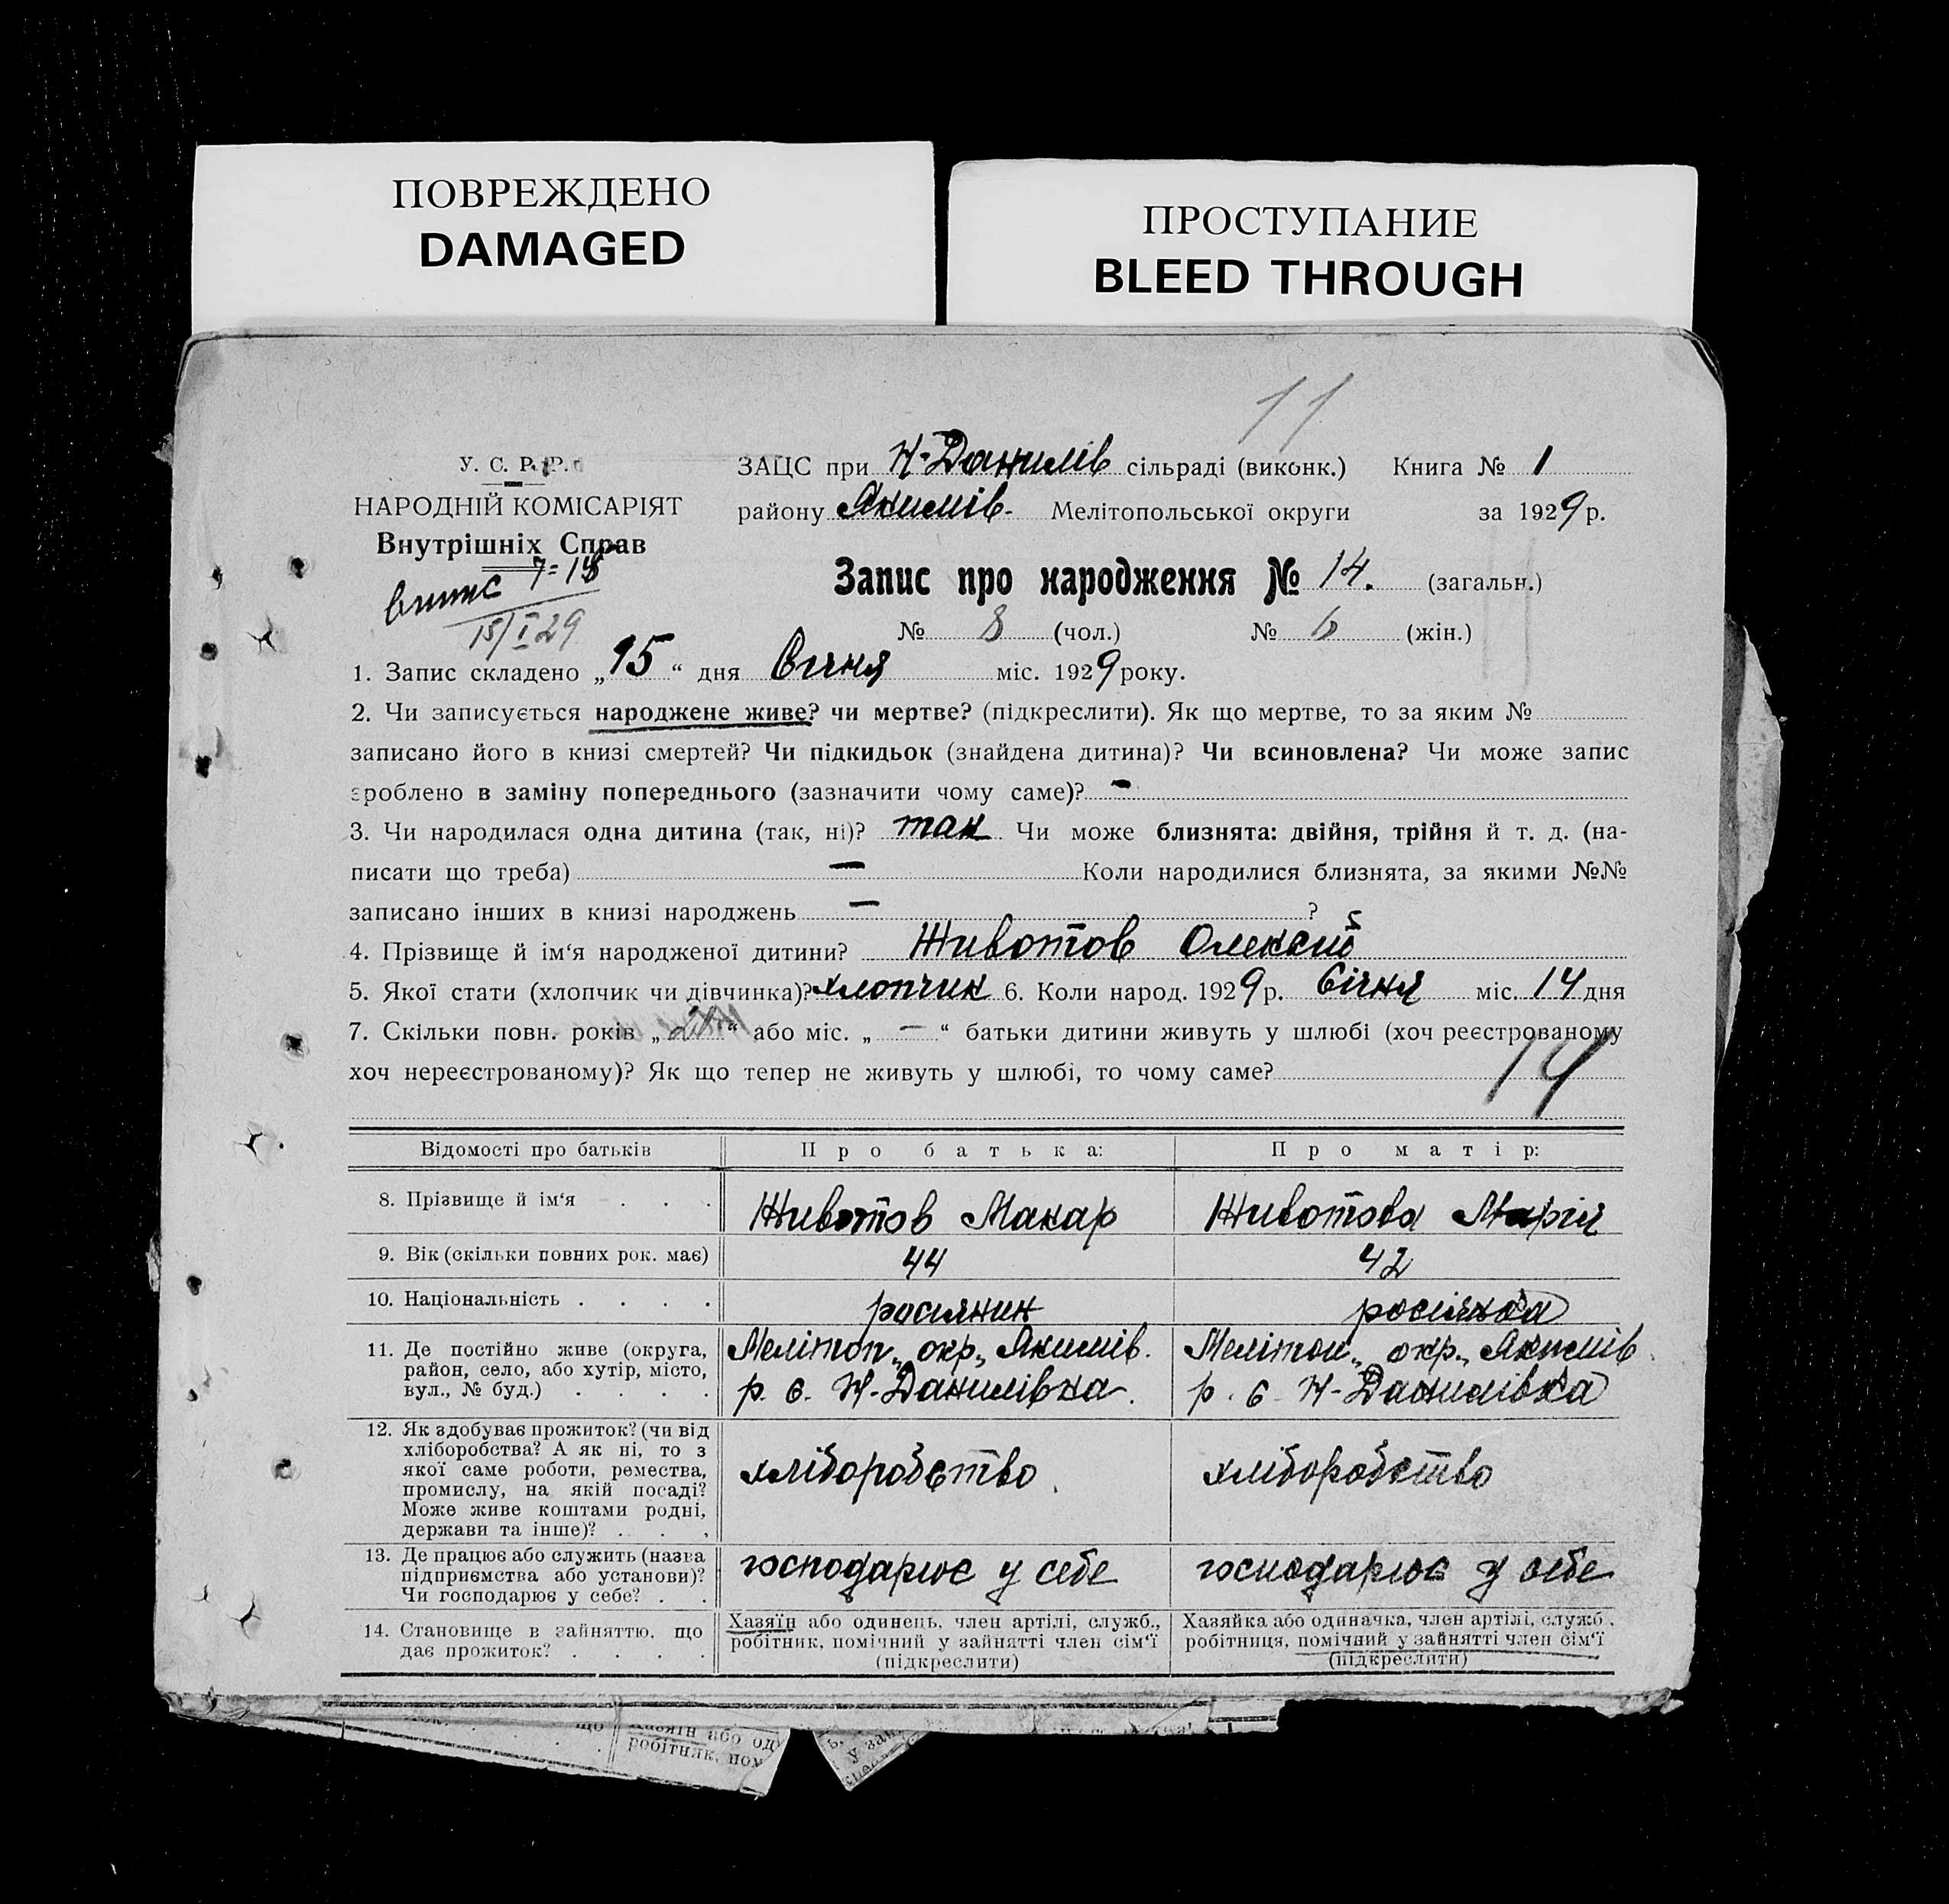 ПОВРЕЖДЕНО
DAMAGED
ПРОСТУПАНИЕ
BLEED THROUGH
11
У. С. Р. Р.
НАРОДНІЙ КОМІСАРІЯТ
Внутрішніх Справ
випис 7=18
15/I 29
ЗАЦС при Н-Данилів сільраді (виконк.) Книга № 1
району Якимів- Мелітопольської округи за 1929 р.
Запис про народження № 14. (загальн.)
№ 8 (чол.) № 6 (жін.)
1. Запис складено „15“ дня Січня міс. 1929 року.
2. Чи записується народжене живе? чи мертве? (підкреслити). Як що мертве, то за яким №
записано його в книзі смертей? Чи підкидьок (знайдена дитина)? Чи всиновлена? Чи може запис
зроблено в заміну попереднього (зазначити чому саме)? -
3. Чи народилася одна дитина (так, ні)? так Чи може близнята: двійня, трійня й т. д. (на-
писати що треба) — Коли народилися близнята, за якими №№
записано інших в книзі народжень — ?
4. Прізвище й ім‘я народженої дитини? Животов Олексій
5. Якої стати (хлопчик чи дівчинка)? хлопчик 6. Коли народ. 1929 р. Січня міс. 14 дня
7. Скільки повн. років „ “ або міс. „ — “ батьки дитини живуть у шлюбі (хоч реєстрованому
хоч нереєстрованому)? Як що тепер не живуть у шлюбі, то чому саме?
14
Відомості про батьків Про батька: Про матір:
8. Прізвище й ім‘я . . . Животов Макар Животова Марія
9. Вік (скільки повних рок. має) 44 42
10. Національність . . . . росіянин росіянка
11. Де постійно живе (округа, район, село, або хутір, місто, вул., № буд.) . . . .
Меліноп„ окр„ Якимів.
р. с. Н-Данилівка.
Мелітоп„ окр„ Якимів
р. с. Н-Данилівка
12. Як здобуває прожиток? (чи від
хліборобства? А як ні, то з
якої саме роботи, ремества,
промислу, на якій посаді?
Може живе коштами родні,
держави та інше)? . . .
хліборобство.
хліборобство
13. Де працює або служить (назва
підприємства або установи)?
Чи господарює у себе? . .
господарює у себе
господарює у себе
14. Становище в зайняттю, що
дає прожиток? . . . .
Хазяїн або одинець, член артілі, служб.,
робітник, помічний у зайнятті член сім‘ї
(підкреслити)
Хазяйка або одиначка, член артілі, служб.
робітниця, помічний у зайнятті член сім‘ї
(підкреслити)
що Хазяїн або од
робітник, пом
у зан